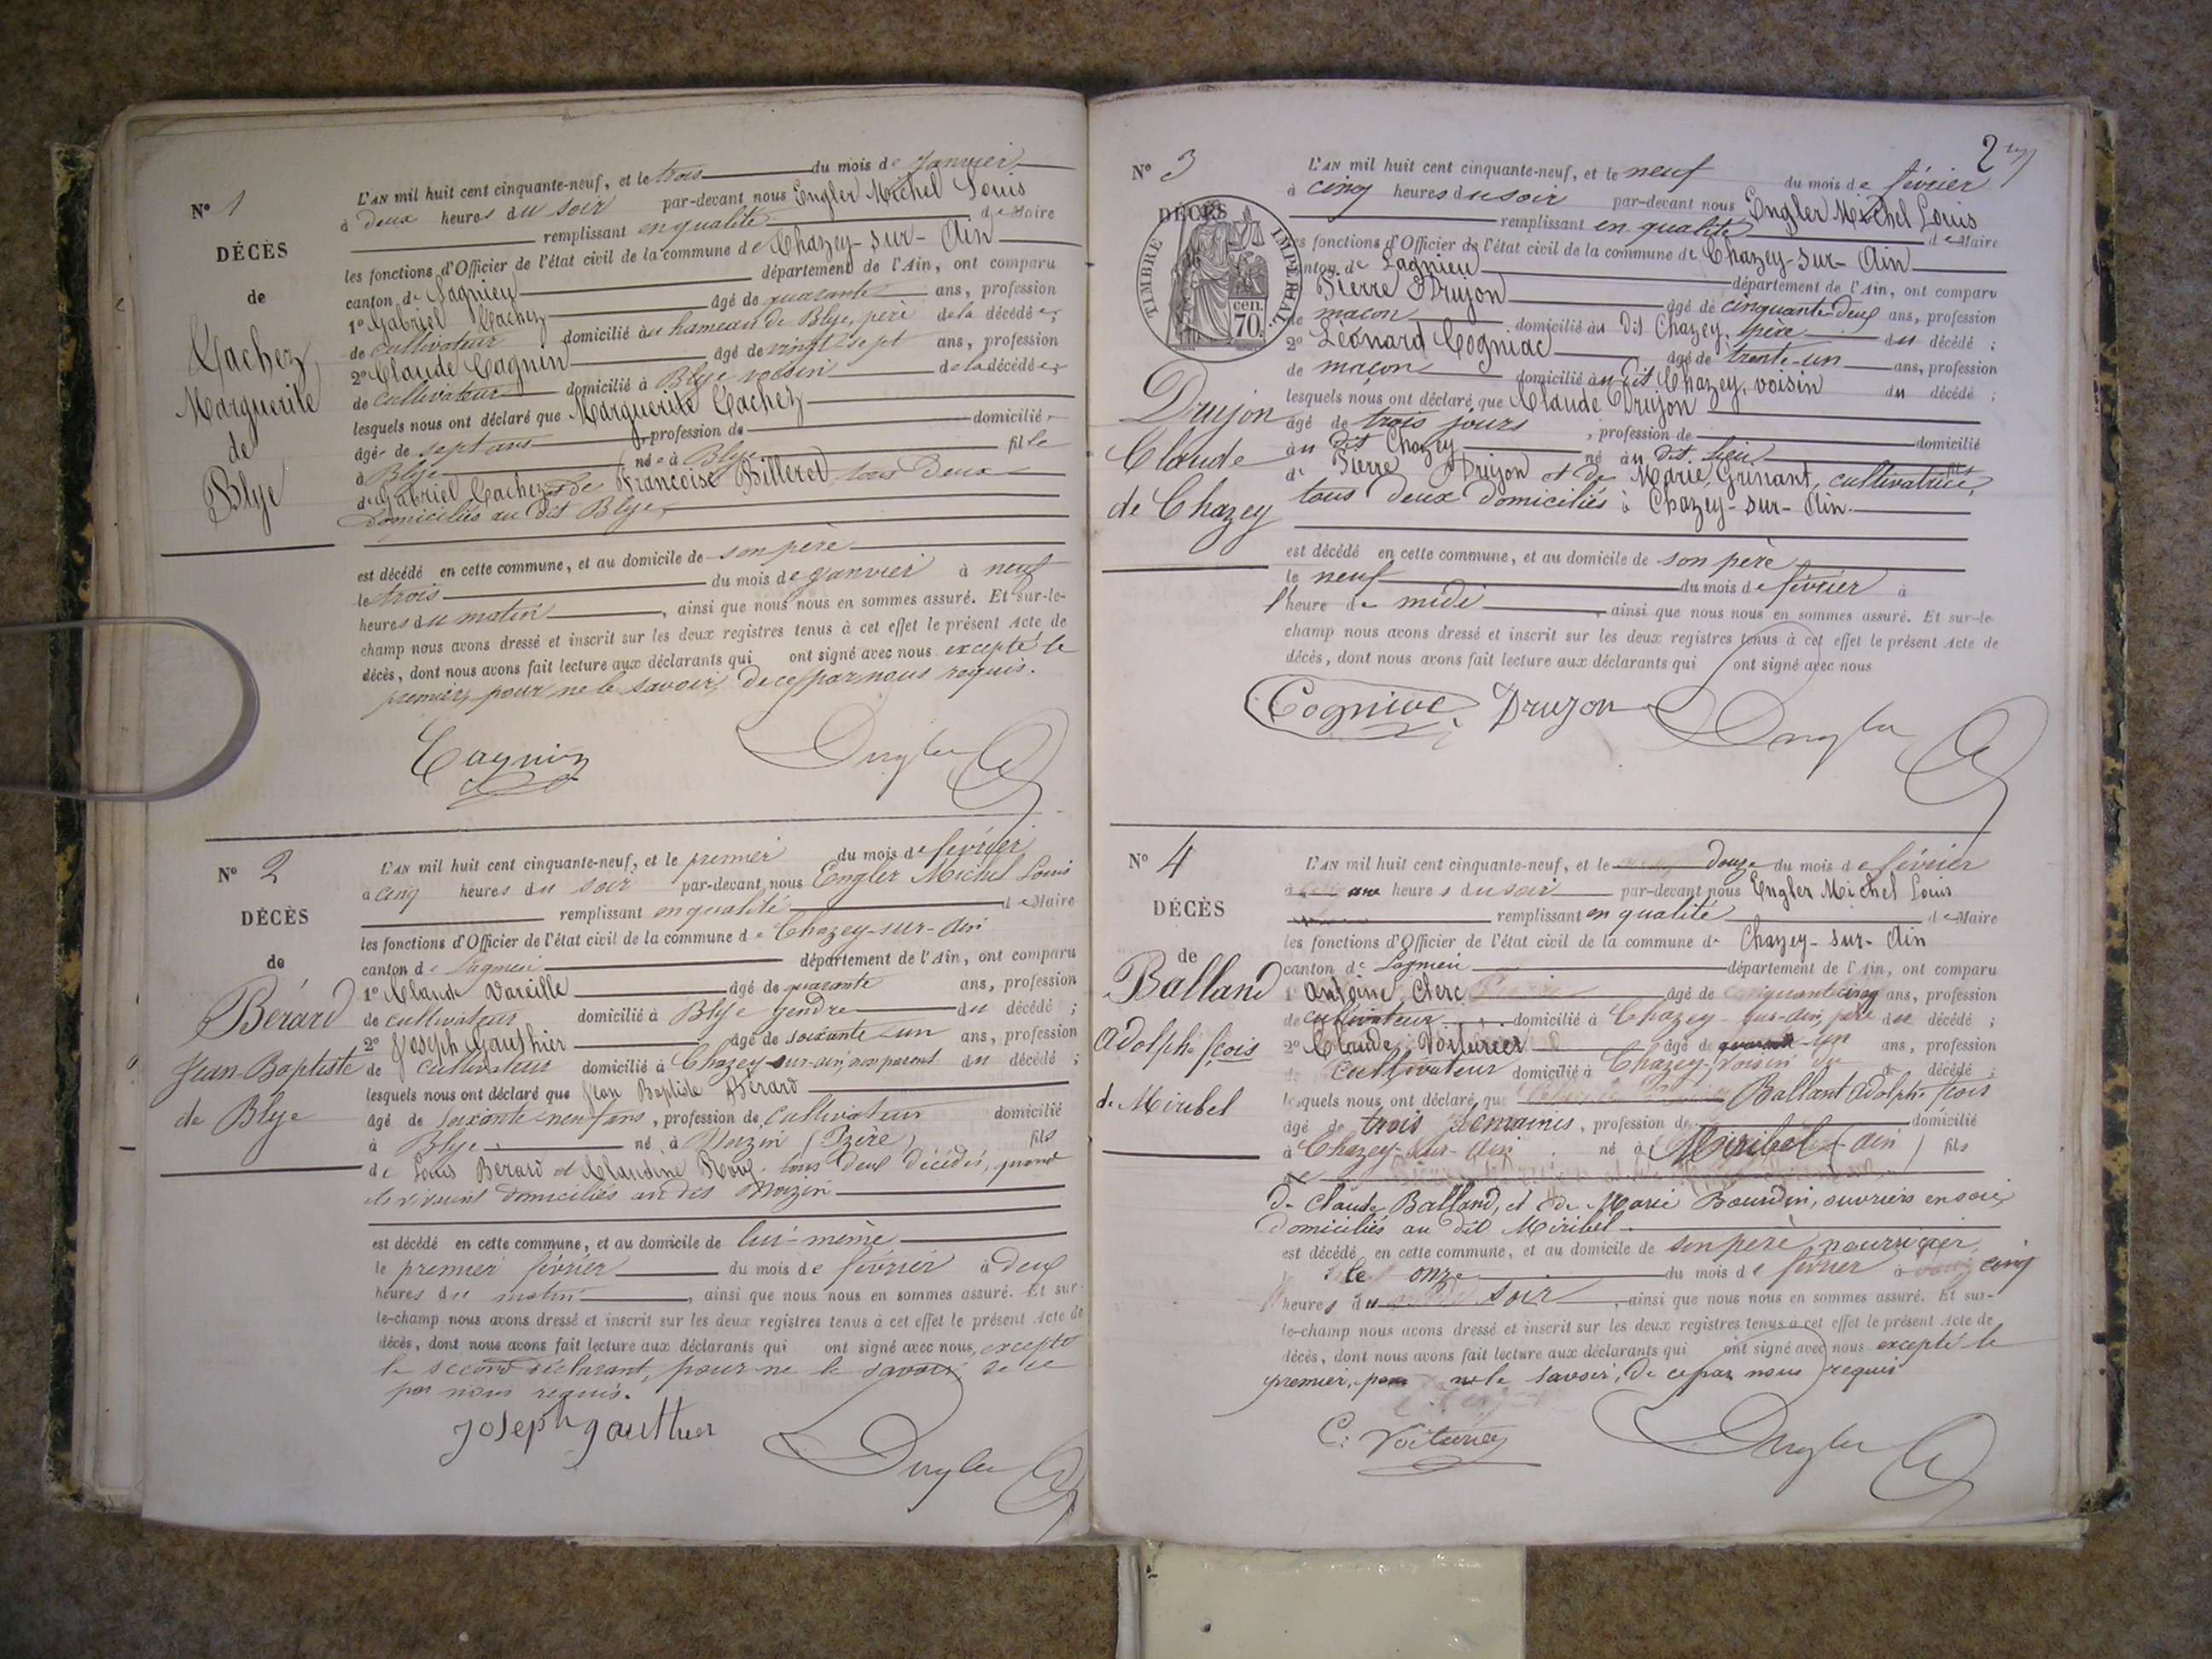 N° 1
DÉCÈS
de
Cachez
Marguerite
de
Blye
L'AN mil huit cent cinquante-neuf, et le trois du mois de Janvier
à deux heures du soir par-devant nous Engler Michel Louis
remplissant en qualité de Maire
les fonctions d'Officier de l'état civil de la commune de Chazey-sur-Ain
canton de Lagnieu département de l'Ain, ont comparu
1° Gabriel Cachez âgé de quarante ans, profession
de cultivateur domicilié au hameau de Blye, père de la décédée;
2° Claude Cagnin âgé de vingt-sept ans, profession
de cultivateur domicilié à Blye voisin de la décédée;
lesquels nous ont déclaré que Marguerite Cachez
âgée de sept ans, profession de domiciliée
à Blye née à Blye fille
de Gabriel Cachez et de Françoise Billeret tous deux
domiciliés au dit Blye,
est décédé en cette commune, et au domicile de son père
le trois du mois de Janvier à neuf
heures du matin, ainsi que nous nous en sommes assuré. Et sur-le-
champ nous avons dressé et inscrit sur les deux registres tenus à cet effet le présent Acte de
décès, dont nous avons fait lecture aux déclarants qui ont signé avec nous excepté le
premier, pour ne le savoir, de ce par nous requis.
Cagnin Engler
N° 2
DÉCÈS
de
Bérard
Jean-Baptiste
de Blye
L'AN mil huit cent cinquante-neuf, et le premier du mois de février
à cinq heures du soir par-devant nous Engler Michel Louis
remplissant en qualité de Maire
les fonctions d'Officier de l'état civil de la commune de Chazey-sur-Ain
canton de Lagnieu département de l'Ain, ont comparu
1° Claude Vareille âgé de quarante ans, profession
de cultivateur domicilié à Blye gendre du décédé;
2° Joseph Gauthier âgé de soixante-un ans, profession
de cultivateur domicilié à Chazey-sur-ain, non parent du décédé;
lesquels nous ont déclaré que Jean Baptiste Bérard
âgé de soixante-neuf ans, profession de cultivateur domicilié
à Blye né à (Izère) fils
de Louis Berard et Claudine tous deux décédés, quand
ils vivaient domiciliés au dit
est décédé en cette commune, et au domicile de lui-même
le premier février du mois de février à deux
heures du matin, ainsi que nous nous en sommes assuré. Et sur-
le-champ nous avons dressé et inscrit sur les deux registres tenus à cet effet le présent Acte de
décès, dont nous avons fait lecture aux déclarants qui ont signé avec nous, excepté
le second déclarant, pour ne le savoir de ce
par nous requis.
Joseph gauthier Engler
2
N° 3
DÉCÈS
TIMBRE IMPÉRIAL
70 cen.
Drujon
Claude
de Chazey
L'AN mil huit cent cinquante-neuf, et le neuf du mois de février
à cinq heures du soir par-devant nous Engler Michel Louis
remplissant en qualité de Maire
les fonctions d'Officier de l'état civil de la commune de Chazey-sur-Ain
canton de Lagnieu département de l'Ain, ont comparu
Pierre Drujon âgé de cinquante-deux ans, profession
de maçon domicilié au dit Chazey, père du décédé;
2° Léonard Cogniac âgé de trente-un ans, profession
de maçon domicilié au dit Chazey, voisin du décédé;
lesquels nous ont déclaré que Claude Drujon
âgé de trois jours, profession de domicilié
au dit Chazey né au dit lieu fils
de Pierre Drujon et de Marie Grinant, cultivatrice,
tous deux domiciliés à Chazey-sur-Ain.
est décédé en cette commune, et au domicile de son père
le neuf du mois de février à
l'heure de midi, ainsi que nous nous en sommes assuré. Et sur-le-
champ nous avons dressé et inscrit sur les deux registres tenus à cet effet le présent Acte de
décès, dont nous avons fait lecture aux déclarants qui ont signé avec nous
Cogniac Drujon Engler
N° 4
DÉCÈS
de
Balland
Adolphe fçois
de Miribel
L'AN mil huit cent cinquante-neuf, et le douze du mois de février
à heures du soir par-devant nous Engler Michel Louis
remplissant en qualité de Maire
les fonctions d'Officier de l'état civil de la commune de Chazey-sur-Ain
canton de Lagnieu département de l'Ain, ont comparu
1° Antoine Clerc âgé de cinquante cinq ans, profession
de cultivateur domicilié à Chazey-sur-ain, père du décédé;
2° Claude Voiturier âgé de quarante-un ans, profession
cultivateur domicilié à Chazey, voisin du décédé;
lesquels nous ont déclaré que Ballant Adolphe fçois
âgé de trois semaines, profession de domicilié
à Chazey-sur-ain né à Miribel (ain) fils
de Claude Balland, et de Marie Bourdin, ouvriers en soie,
domiciliés au dit Miribel
est décédé en cette commune, et au domicile de son père nourricier
le onze du mois de février à cinq
heures du soir, ainsi que nous nous en sommes assuré. Et sur-
le-champ nous avons dressé et inscrit sur les deux registres tenus à cet effet le présent Acte de
décès, dont nous avons fait lecture aux déclarants qui ont signé avec nous excepté le
premier, pour ne le savoir, de ce par nous requis
C. Voiturier Engler